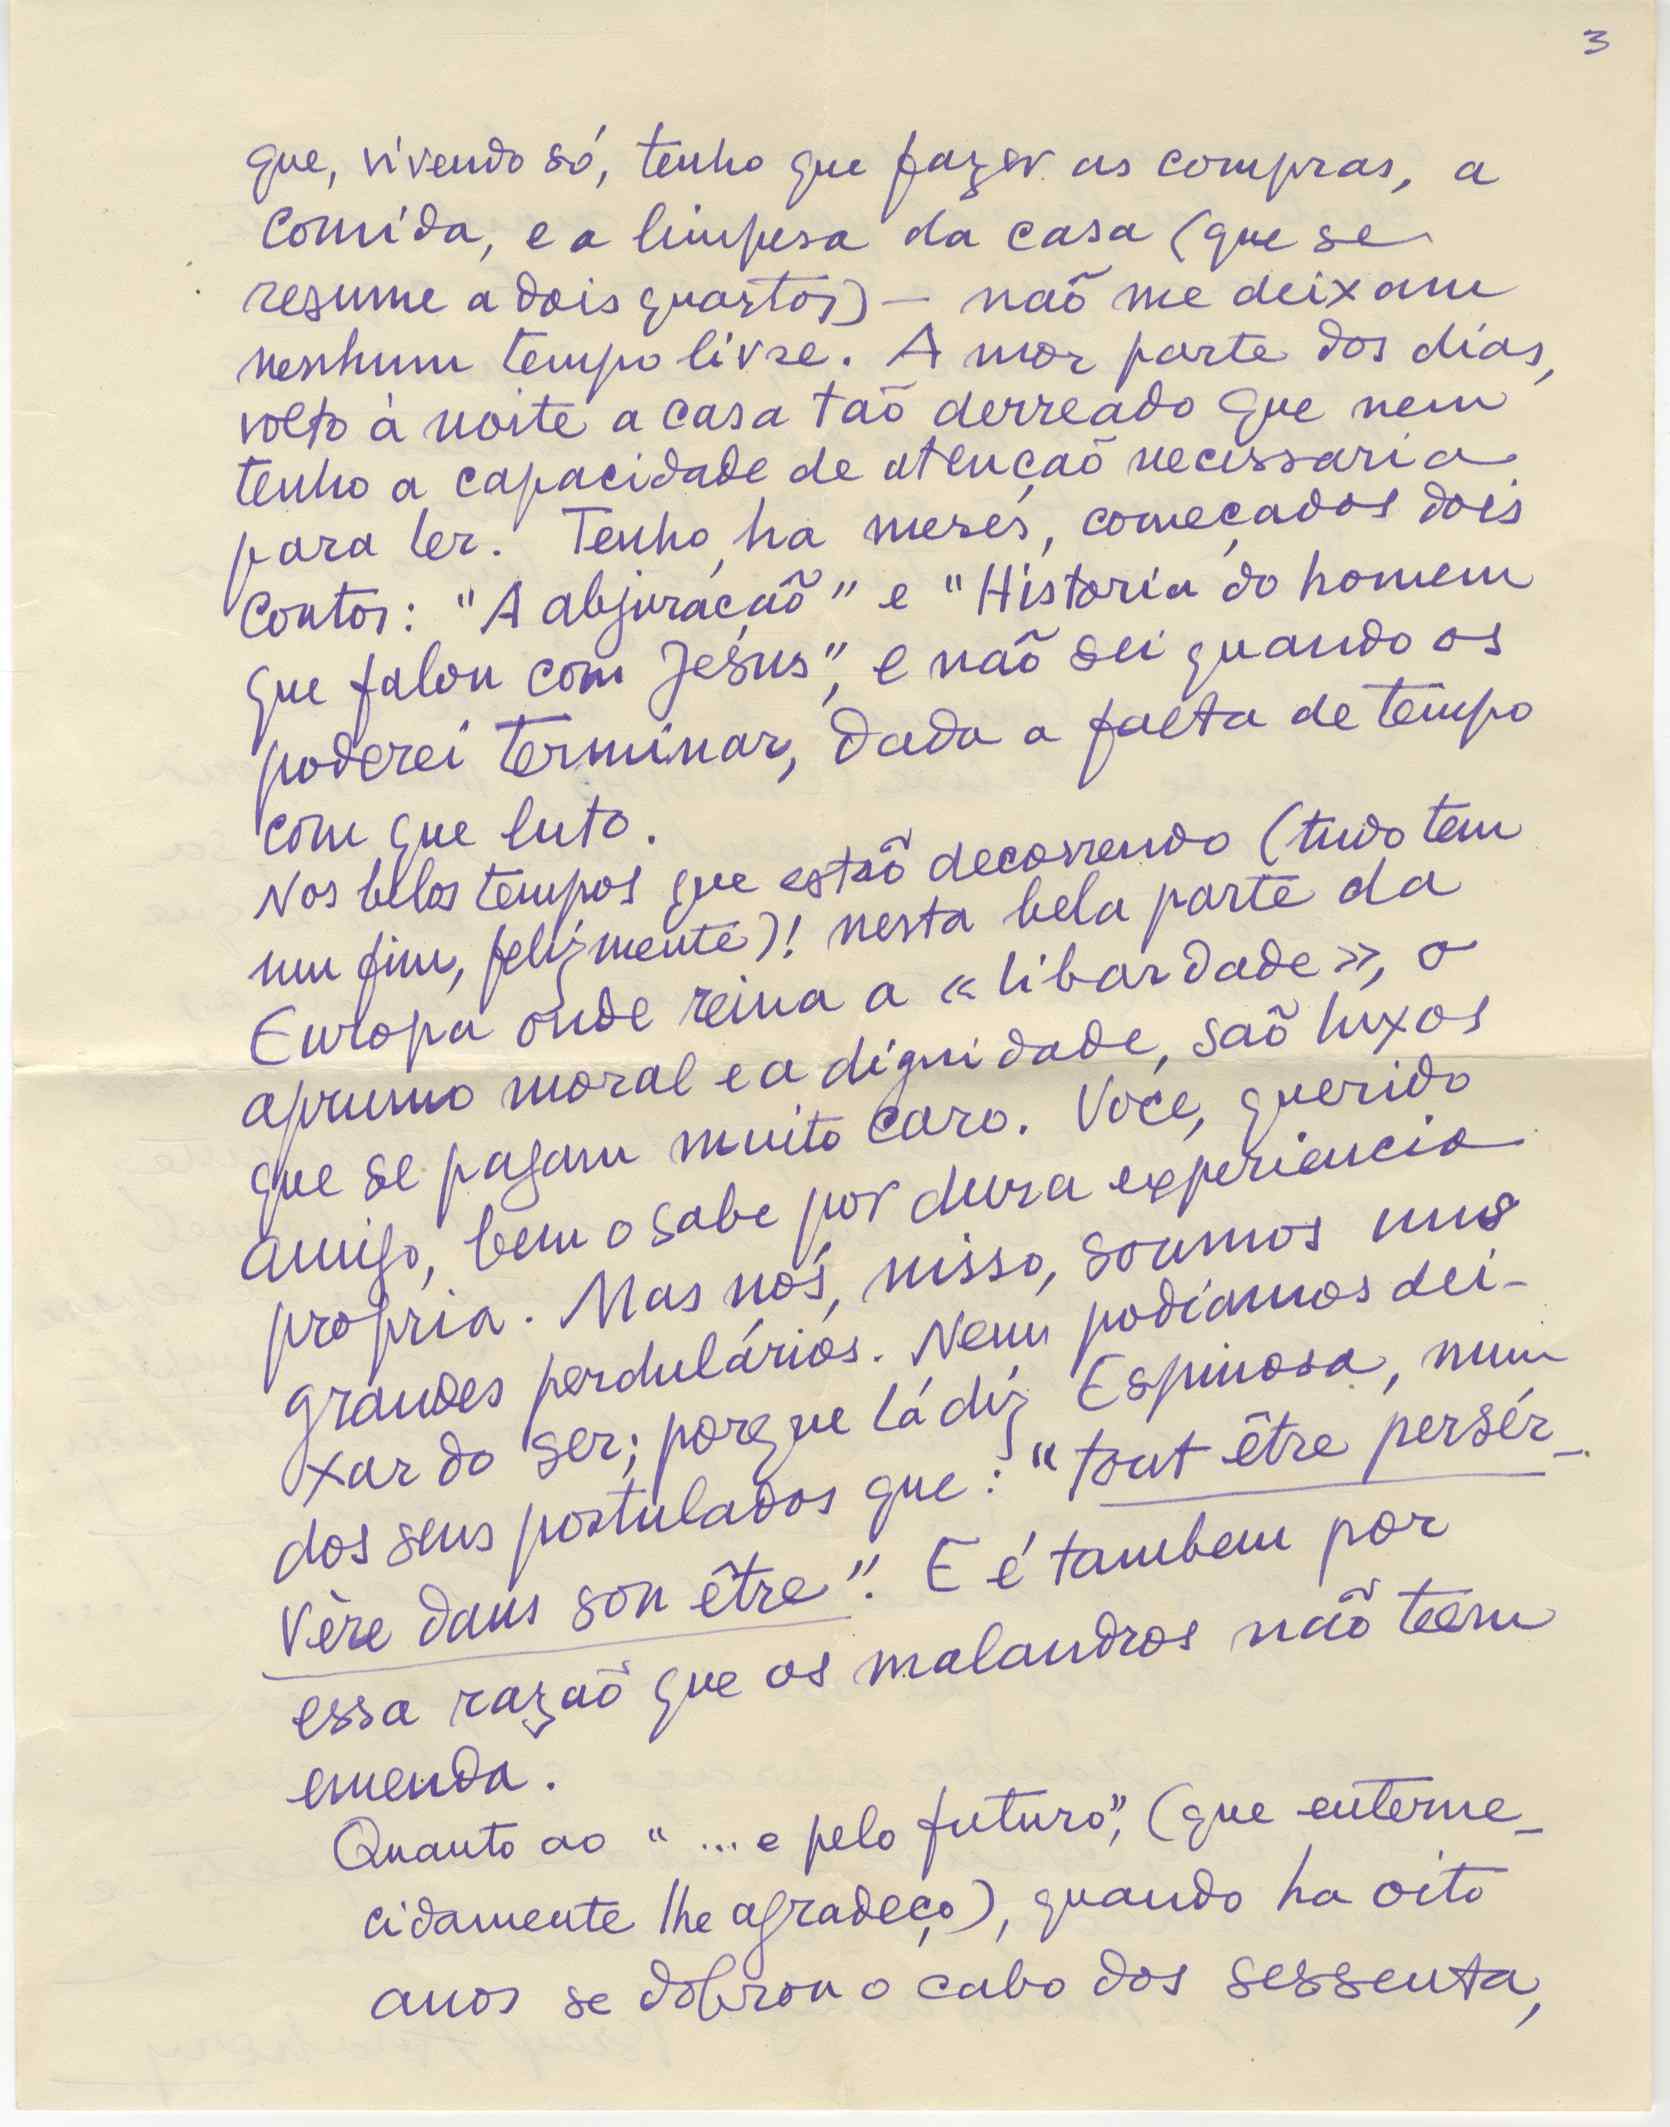 3
que, vivendo só, tenho que fazer as compras, a
comida, e a limpesa da casa (que se
resume a dois quartos) — não me deixam
nenhum tempo livre. A mor parte dos dias,
volto à noite a casa tão derreado que nem
tenho a capacidade de atenção necessaria
para ler. Tenho, ha meses, começados dois
contos: "A abjuração" e "Historia do homem
que falou com Jesus", e não sei quando os
poderei terminar, dada a falta de tempo
com que luto.
Nos belos tempos que estão decorrendo (tudo tem
um fim, felizmente)! nesta bela parte da
Europa onde reina a «libardade», o
aprumo moral e a dignidade, são luxos
que se pagam muito caro. Você, querido
amigo, bem o sabe por dura experiencia
propria. Mas nós, nisso, somos uns
grandes perdulários. Nem podíamos dei-
xar do ser; porque lá diz Espinosa, num
dos seus postulados que: "tout être persér-
vère dans son être". E é tambem por
essa razão que os malandros não teem
emenda.
Quanto ao "... e pelo futuro", (que enterne-
cidamente lhe agradeço), quando ha oito
anos se dobrou o cabo dos sessenta,